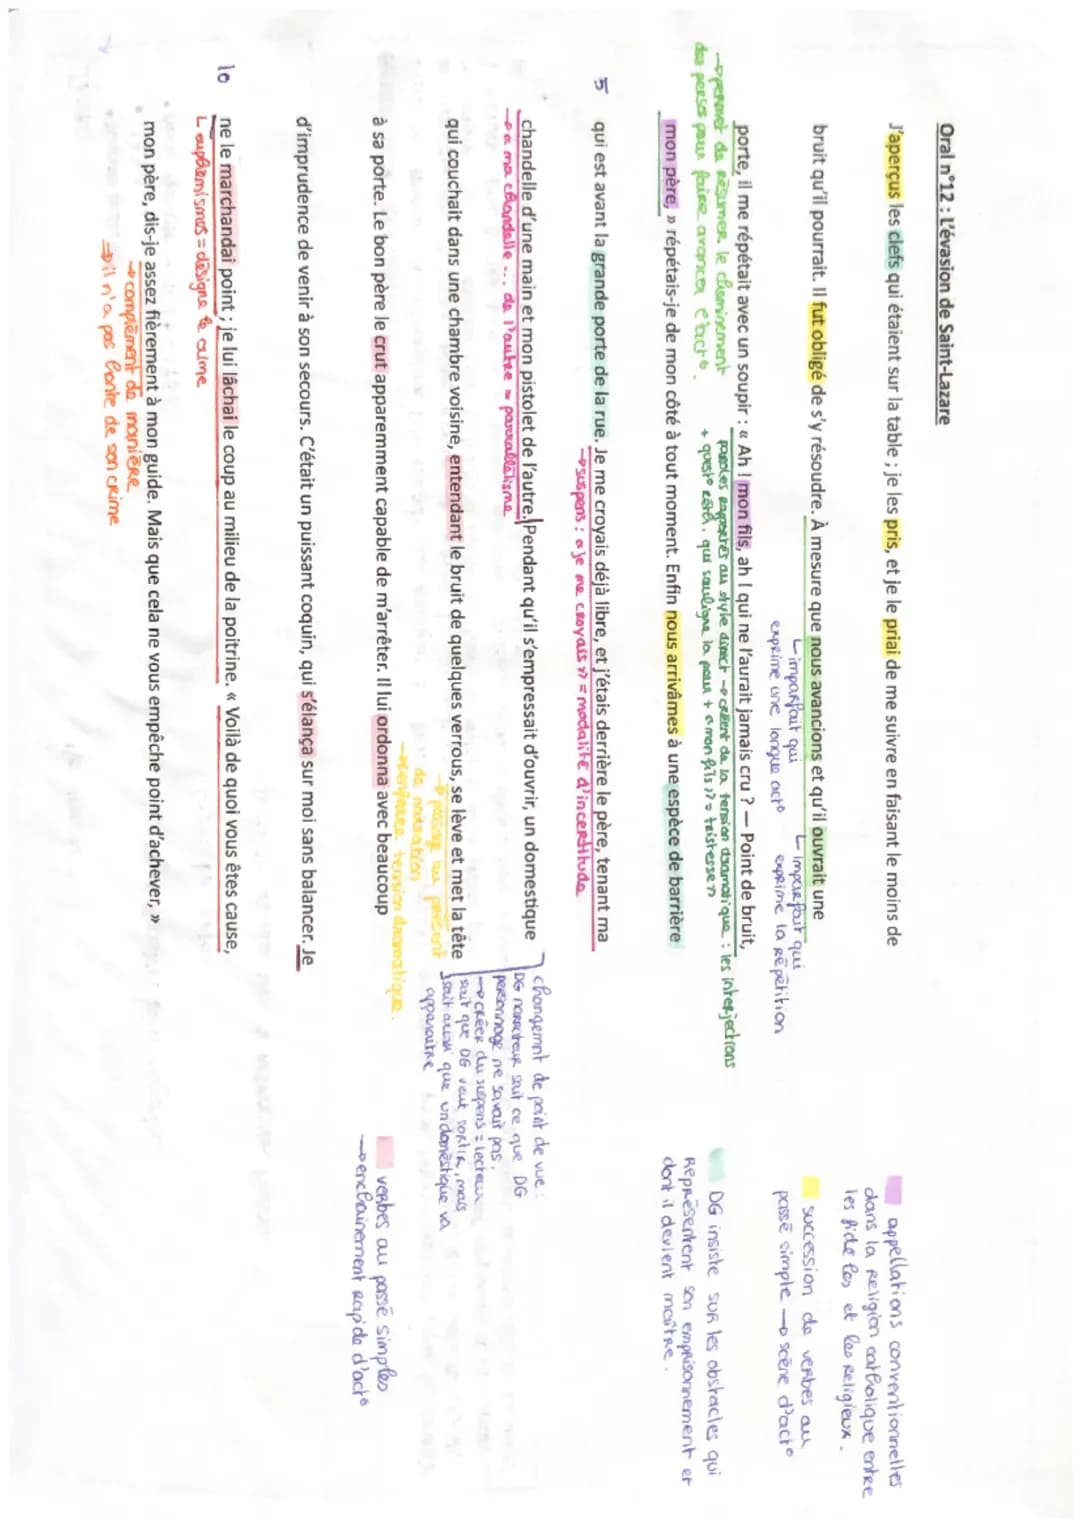 Oral n°12 : L'évasion de Saint-Lazare
J'aperçus les clefs qui étaient sur la table ; je les pris, et je le priai de me suivre en faisant le moins de
bruit qu'il pourrait. Il fut obligé de s'y résoudre. À mesure que nous avancions et qu'il ouvrait une
imparfait qui
exprime une longue act°
imparfait qui
exprime la répétition
porte, il me répétait avec un soupir : « Ah ! mon fils, ah ! qui ne l'aurait jamais cru ? — Point de bruit,
→ permet de résumer le cheminement
des persos pour faire avancer l'act°.
paroles rapportés au style direct → créent de la tension dramatique : les interjections
+ quest° réth. qui souligne la peur + « mon fils » = tristesse
mon père, » répétais-je de mon côté à tout moment. Enfin nous arrivâmes à une espèce de barrière
5 qui est avant la grande porte de la rue. Je me croyais déjà libre, et j'étais derrière le père, tenant ma
→ suspens : « je me croyais » = modalité d'incertitude
chandelle d'une main et mon pistolet de l'autre. Pendant qu'il s'empressait d'ouvrir, un domestique
→ « ma chandelle ... de l'autre » parrallélisme
qui couchait dans une chambre voisine, entendant le bruit de quelques verrous, se lève et met la tête
→ passage au présent
de narration
→ renforce tension dramatique.
à sa porte. Le bon père le crut apparemment capable de m'arrêter. Il lui ordonna avec beaucoup
d'imprudence de venir à son secours. C'était un puissant coquin, qui s'élança sur moi sans balancer. Je
10 ne le marchandai point ; je lui lâchai le coup au milieu de la poitrine. « Voilà de quoi vous êtes cause,
euphémismes = désigne le crime
mon père, dis-je assez fièrement à mon guide. Mais que cela ne vous empêche point d'achever, »
→ complément de manière
→ il n'a pas honte de son crime
changemnt de point de vue :
DG narrateur sait ce que DG
personnage ne savait pas.
→ créer du suspens = lecteur
sait que DG veut sortir, mais
sait aussi que un domestique va
apparaitre
appellations conventionnelles
dans la religion catholique entre
les fidèles et les religieux.
succession de verbes au
passé simple → scène d'act°
DG insiste sur les obstacles qui
représentent son emprisonnement et
dont il devient maître.
verbes au passé simples
→ enchainement rapide d'act°